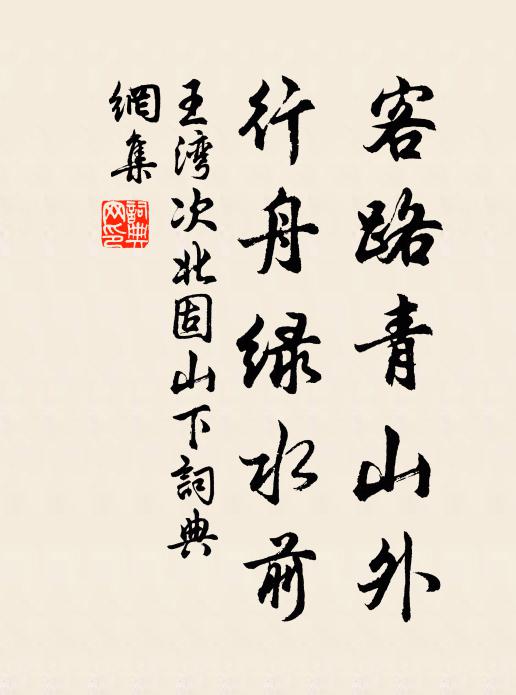 客路青山外
行舟绿水前
王湾次北固山下詞典
網集
詞典网印